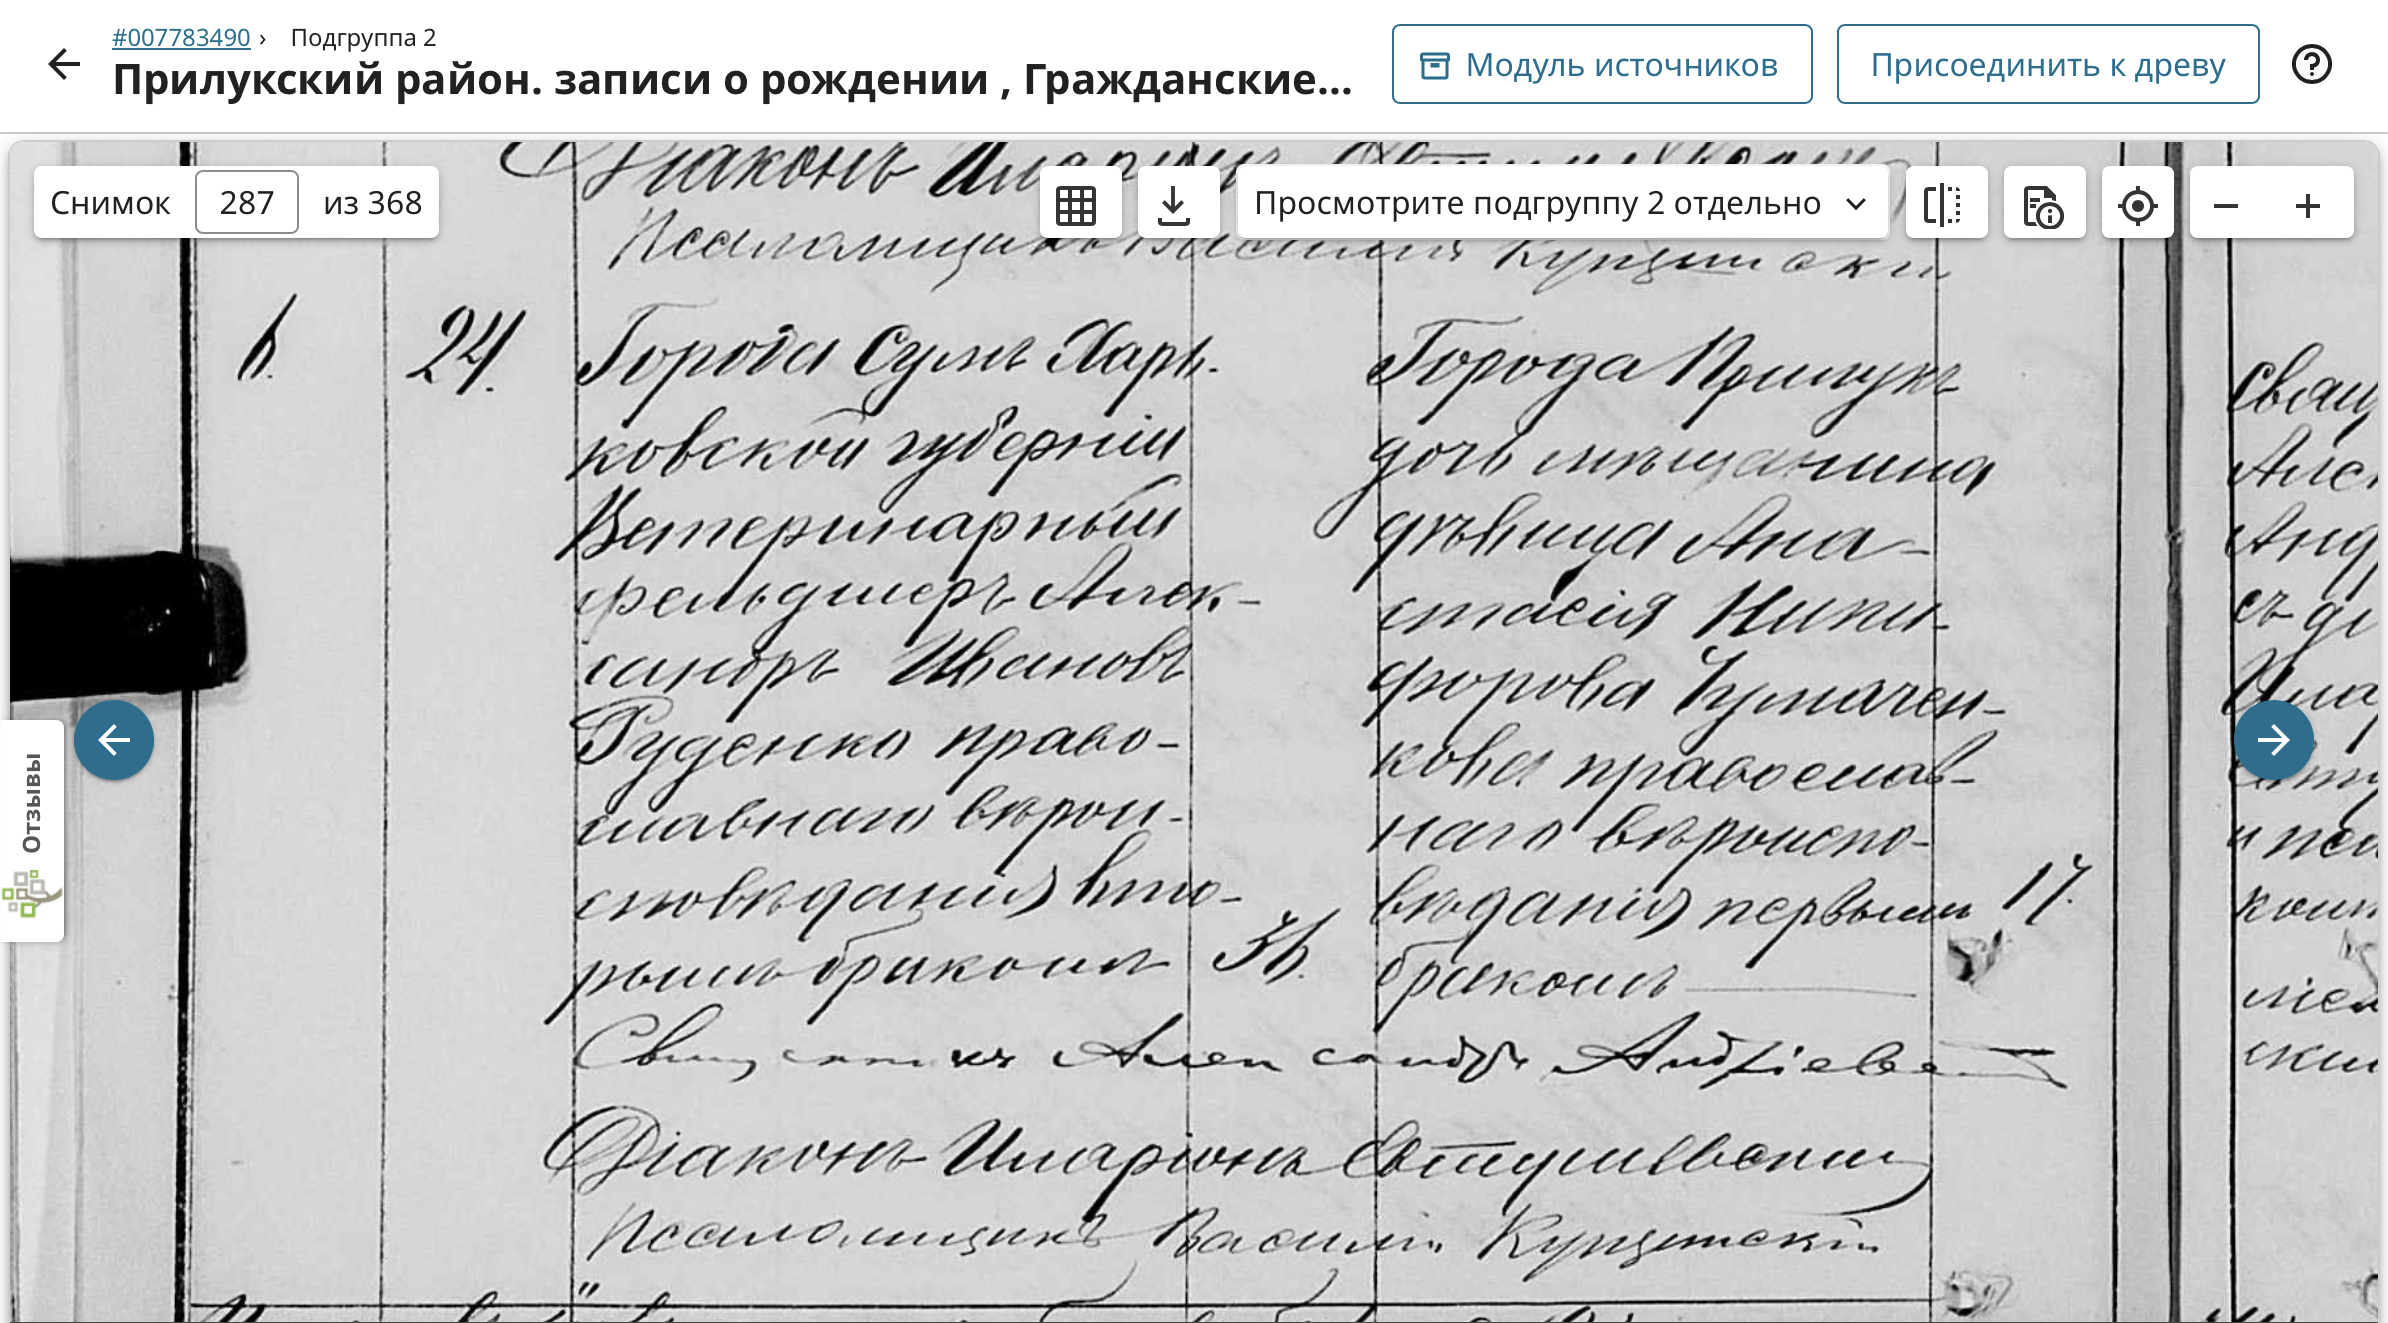 #007783490 › Подгруппа 2
Прилукский район. записи о рождении , Гражданские...
Модуль источников
Присоединить к древу
Снимок 287 из 368
Просмотрите подгруппу 2 отдельно
Отзывы
Діаконъ Иларіонъ
Псаломщикъ Василій
6. 24.
Города Сумъ Харь-
ковской губерніи
Ветеринарный
фельдшеръ Алек-
сандръ Ивановъ
Руденко право-
славнаго вѣрои-
сповѣданія вто-
рымъ бракомъ
36.
Города Прилукъ
дочь мѣщанина
дѣвица Ана-
стасія Ники-
форова Чумачен-
кова православ-
наго вѣроиспо-
вѣданія первымъ
бракомъ
17.
Священникъ Александръ Андріевъ
Діаконъ Иларіонъ
Псаломщикъ Василій